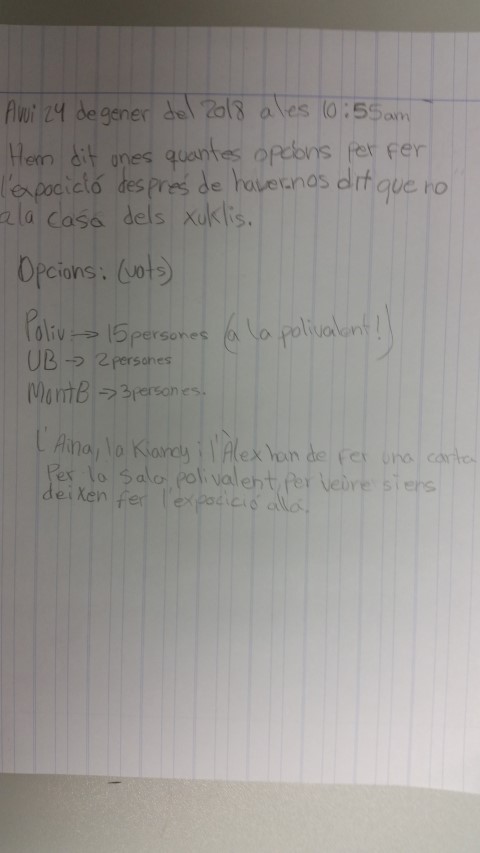 Avui 24 de gener del 2018 a les 10:55am
Hem dit ones quantes opcions per fer
l'expocició després de havernos dit que no
a la casa dels xuklis.
Opcions: (vots)
Poliv → 15 persones (a la polivalent!)
UB → 2 persones
MontB → 3 persones.
L'Aina, la Kiancy i l'Àlex han de fer una carta
Per la Sala polivalent, per veure si ens
deixen fer l'expocició allà.